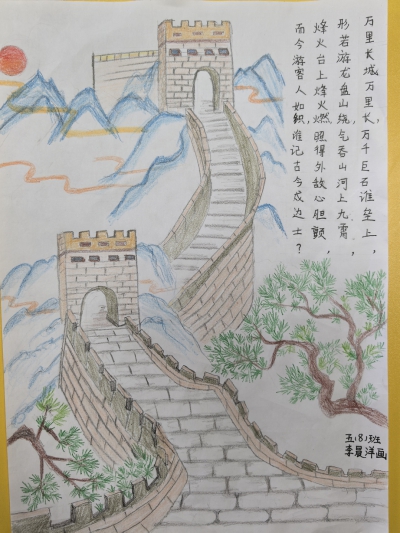 万里长城万里长，万千巨石谁垒上，
形若游龙盘山绕，气吞山河上九霄，
烽火台上烽火燃，照得外敌心胆颤，
而今游客人如织，谁记古今戍边士？
五(8)班
李晨洋画